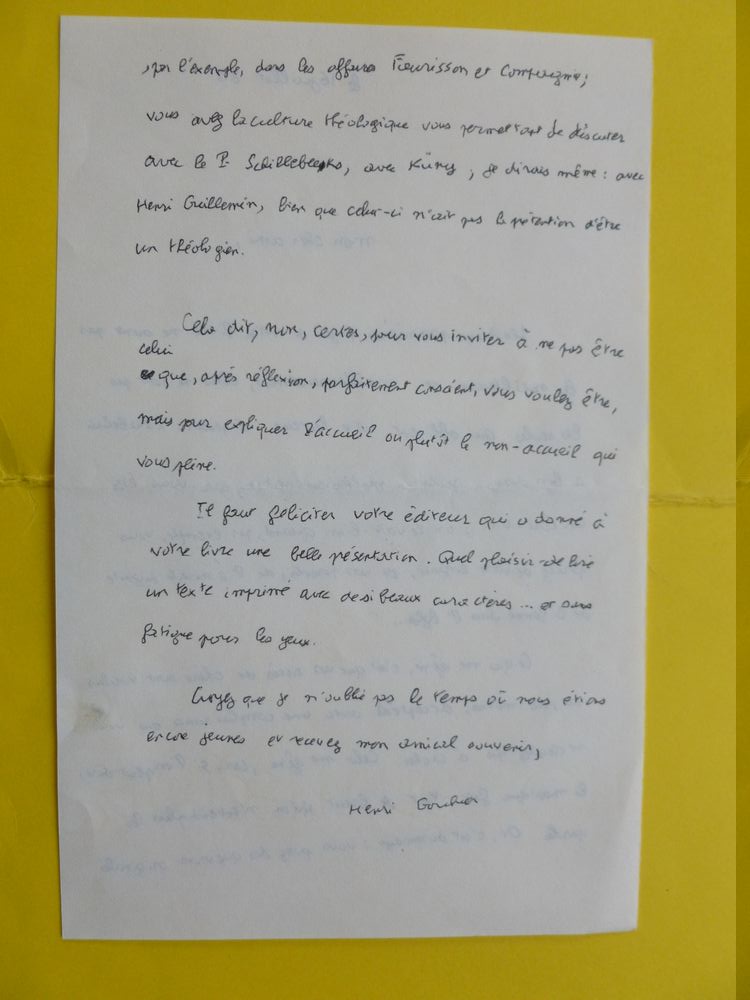 , par l'exemple, dans les affaires Faurisson et Compagnie;
vous avez la culture théologique vous permettant de discuter
avec le P. Schillebeeckx, avec Küng, je dirais même : avec
Henri Guillemin, bien que celui-ci n'ait pas la prétention d'être
un théologien.
Cela dit, non, certes, pour vous inviter à ne pas être
celui
que, après réflexion, parfaitement conscient, vous voulez être,
mais pour expliquer l'accueil ou plutôt le non-accueil qui
vous peine.
Il faut féliciter votre éditeur qui a donné à
votre livre une belle présentation. Quel plaisir de lire
un texte imprimé avec de si beaux caractères ... et sans
fatigue pour les yeux.
Croyez que je n'oublie pas le temps où nous étions
encore jeunes et recevez mon amical souvenir,
Henri Gouhier